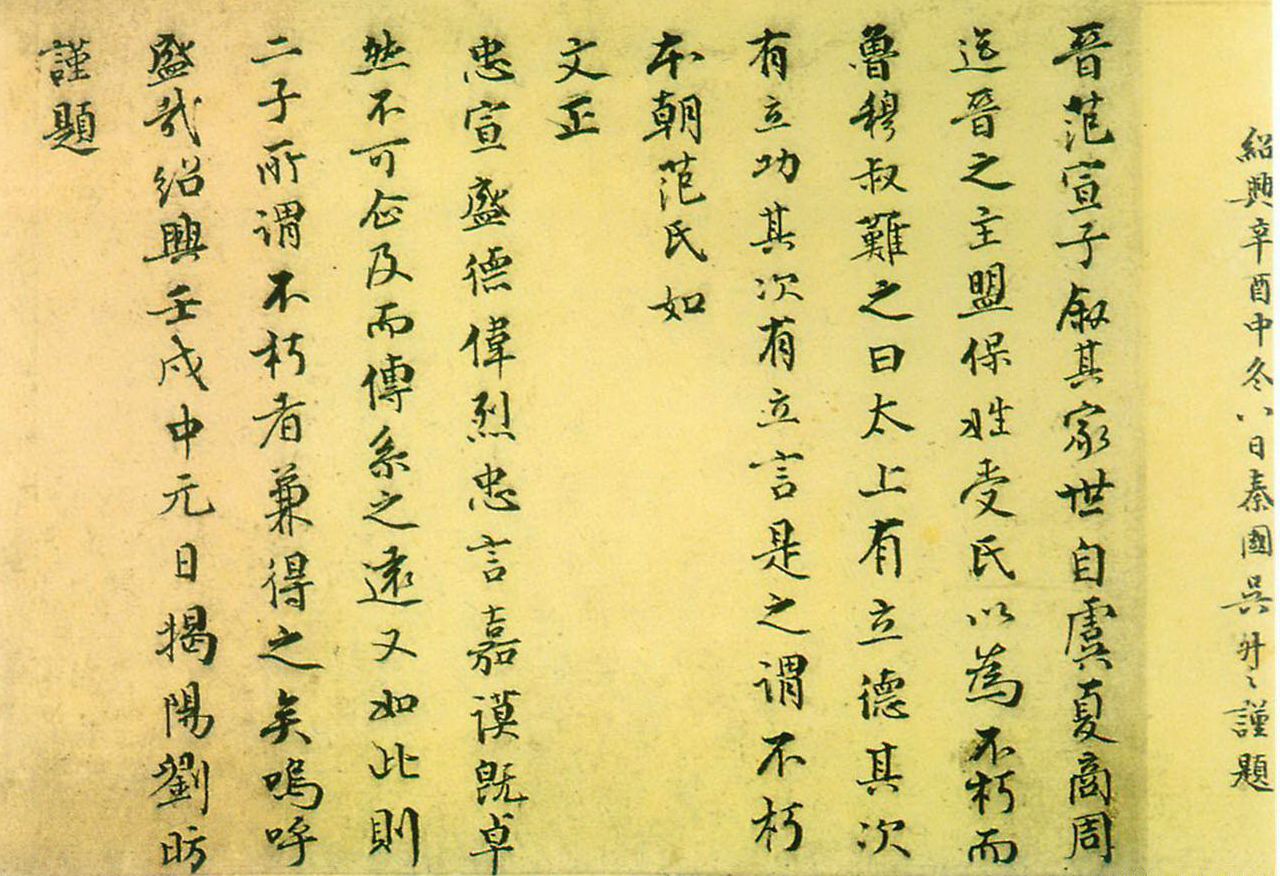 紹興辛酉中冬八日秦國吳升謹題
晉范宣子叙其家世自虞夏商周
迄晉之主盟保姓受氏以為不朽而
魯穆叔難之曰太上有立德其次
有立功其次有立言是之謂不朽
本朝范氏如
文正
忠宣盛德偉烈忠言嘉謨既卓
然不可企及而傳系之遠又如此則
二子所謂不朽者兼得之矣嗚呼
盛哉紹興壬戌中元日揭陽劉昉
謹題